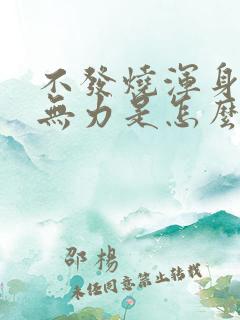 不發燒渾身
無力是怎麼
邵楊
未經同意禁止轉載